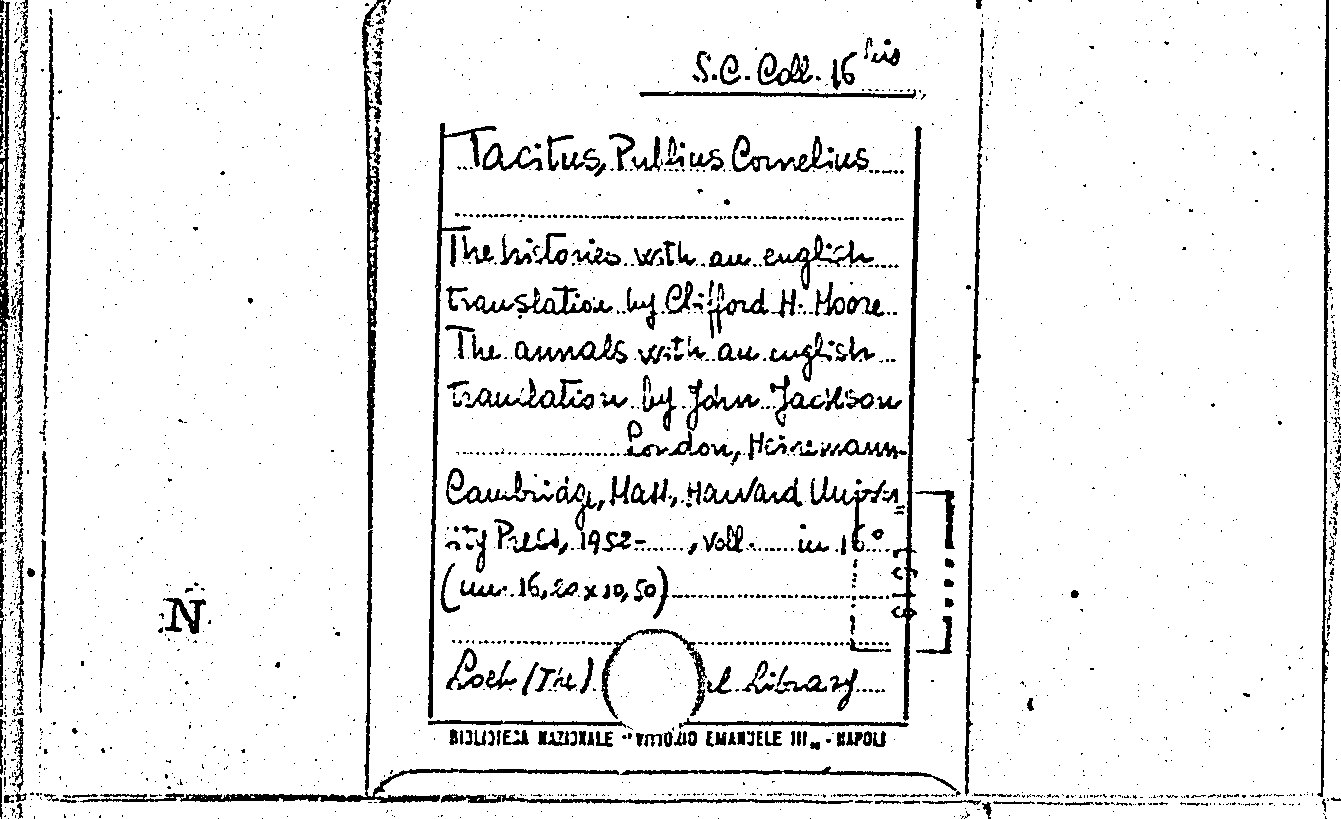 S.C. Coll. 16 bis
Tacitus, Publius Cornelius
The histories with an english
translation by Clifford H. Moore
The annals with an english
translation by John Jackson
London, Heinemann-
Cambridge, Mass., Harvard Univers=
ity Press, 1952- , voll. in 16°
(cm. 16,20 x 10,50)
Loeb (The) l Library
BIBLIOTECA NAZIONALE "VITTORIO EMANUELE III" - NAPOLI
N